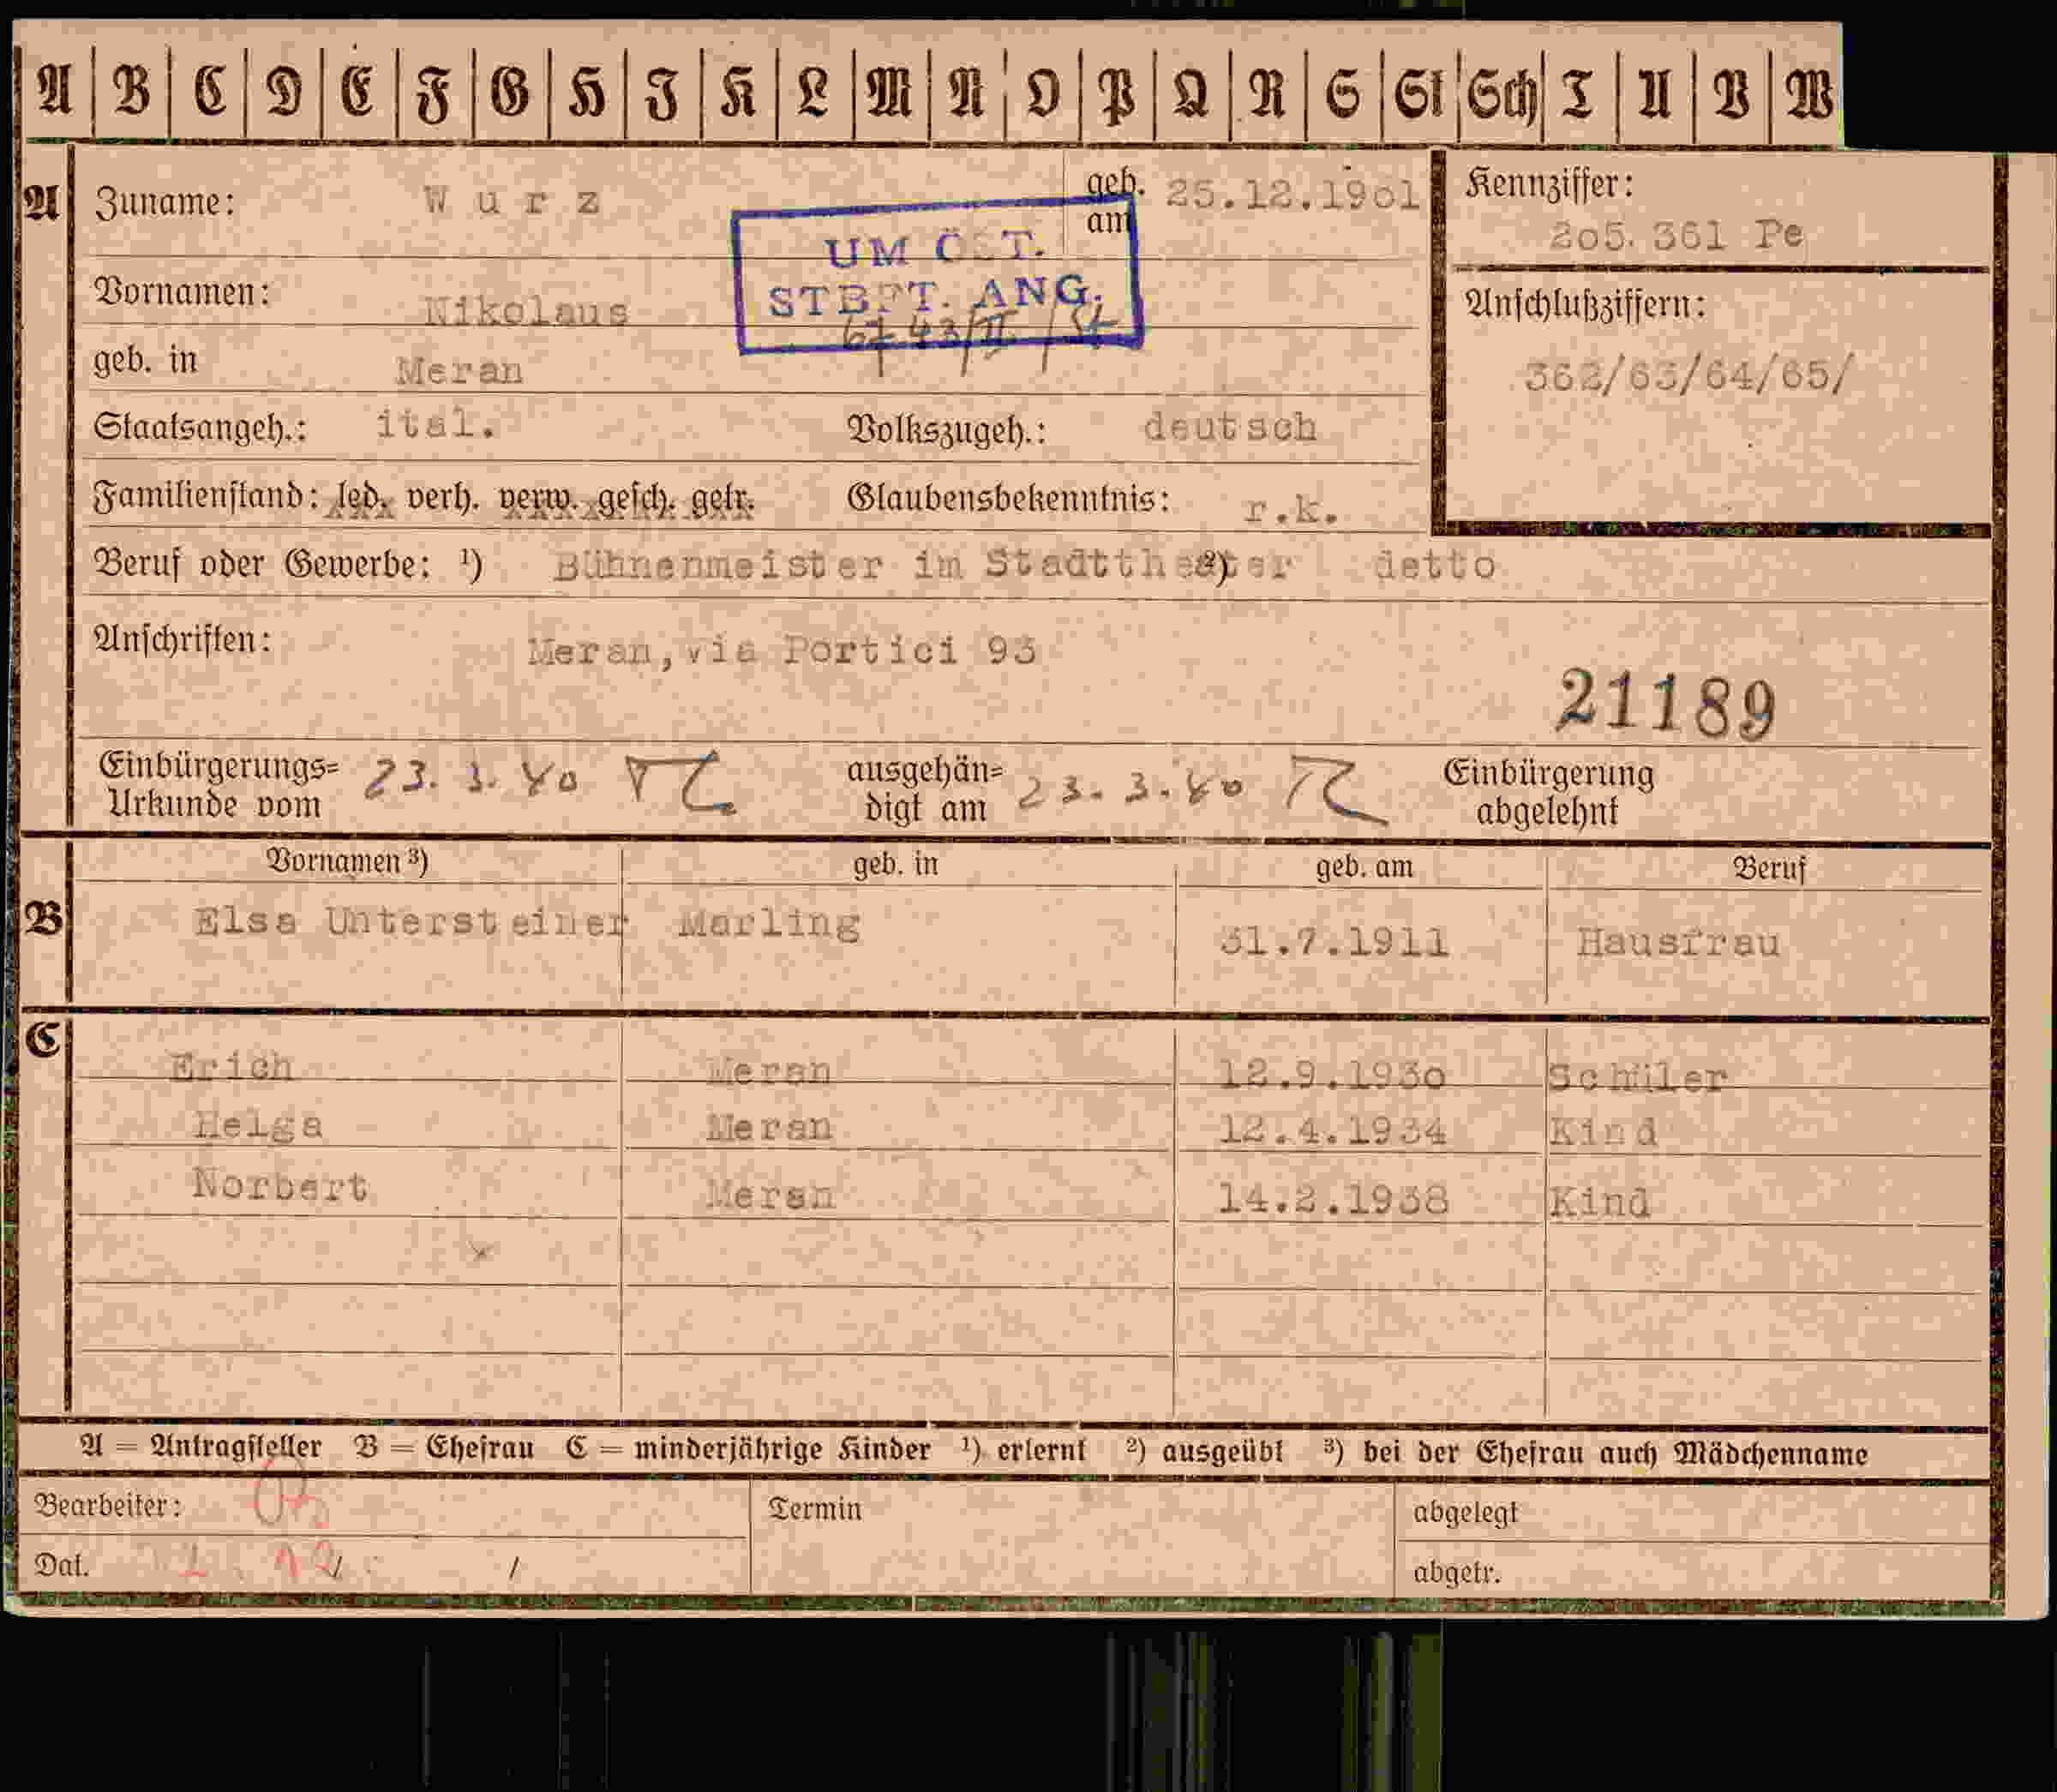 A B C D E F G H J K L M N O P Q R S St Sch T U V W
A Zuname: Wurz geb. am 25.12.19o1 Kennziffer:
2o5.361 Pe
UM ÖST.
STBFT. ANG.
Vornamen: Nikolaus Anschlußziffern:
geb. in Meran 362/63/64/65/
Staatsangeh.: ital. Volkszugeh.: deutsch
Familienstand: led. verh. verw. gesch. getr. Glaubensbekenntnis: r.k.
Beruf oder Gewerbe: ¹) Bühnenmeister im Stadttheater ²) detto
Anschriften: Meran,via Portici 93
21189
Einbürgerungs= Urkunde vom 23.3.40 ausgehän= digt am 23.3.40 Einbürgerung abgelehnt
Vornamen ³) geb. in geb. am Beruf
B Elsa Untersteiner Marling 31.7.1911 Hausfrau
C
Erich Meran 12.9.193o Schüler
Helga Meran 12.4.1934 Kind
Norbert Meran 14.2.1938 Kind
A = Antragsteller B = Ehefrau C = minderjährige Kinder ¹) erlernt ²) ausgeübt ³) bei der Ehefrau auch Mädchenname
Bearbeiter: Termin abgelegt
Dat. abgetr.